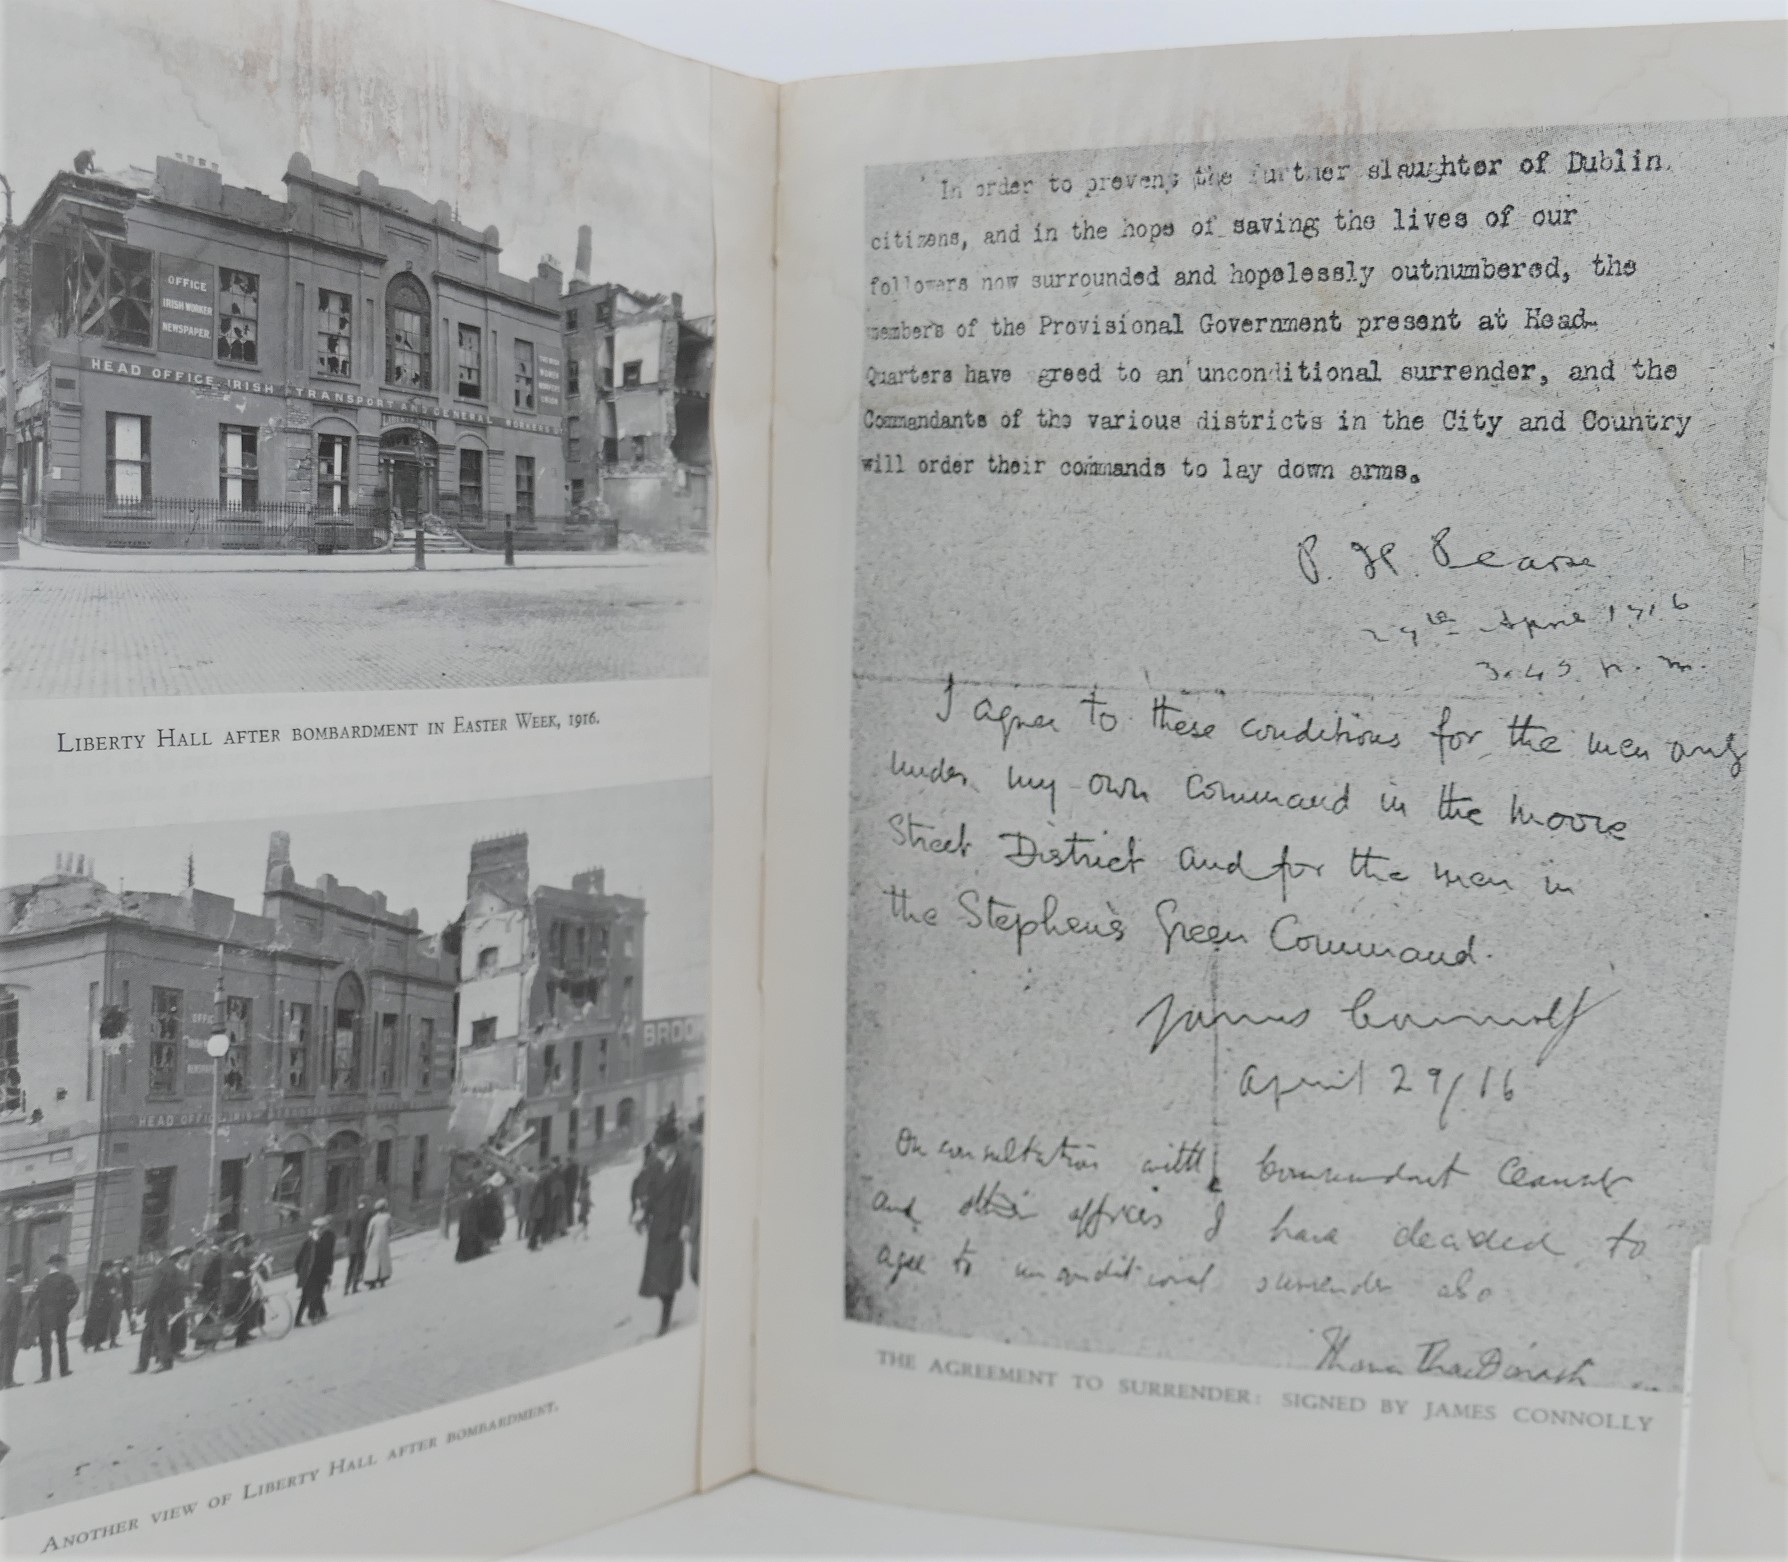 OFFICE
IRISH WORKER
NEWSPAPER.
HEAD OFFICE IRISH TRANSPORT AND GENERAL WORKERS
LIBERTY HALL AFTER BOMBARDMENT IN EASTER WEEK, 1916.
BROO
HEAD OFFICE
ANOTHER VIEW OF LIBERTY HALL AFTER BOMBARDMENT.
In order to prevent the further slaughter of Dublin
citizens, and in the hope of saving the lives of our
followers now surrounded and hopelessly outnumbered, the
members of the Provisional Government present at Head-
Quarters have greed to an unconditional surrender, and the
Commandants of the various districts in the City and Country
will order their commands to lay down arms.
P. H. Pearse
29th April 1916
3.45 p.m.
I agree to these conditions for the men only
under my own command in the Moore
Street District and for the men in
the Stephen's Green Command.
James Connolly
April 29/16
On consultation with Commandant Ceannt
and other officers I have decided to
agree to unconditional surrender also
Thomas MacDonagh
THE AGREEMENT TO SURRENDER: SIGNED BY JAMES CONNOLLY